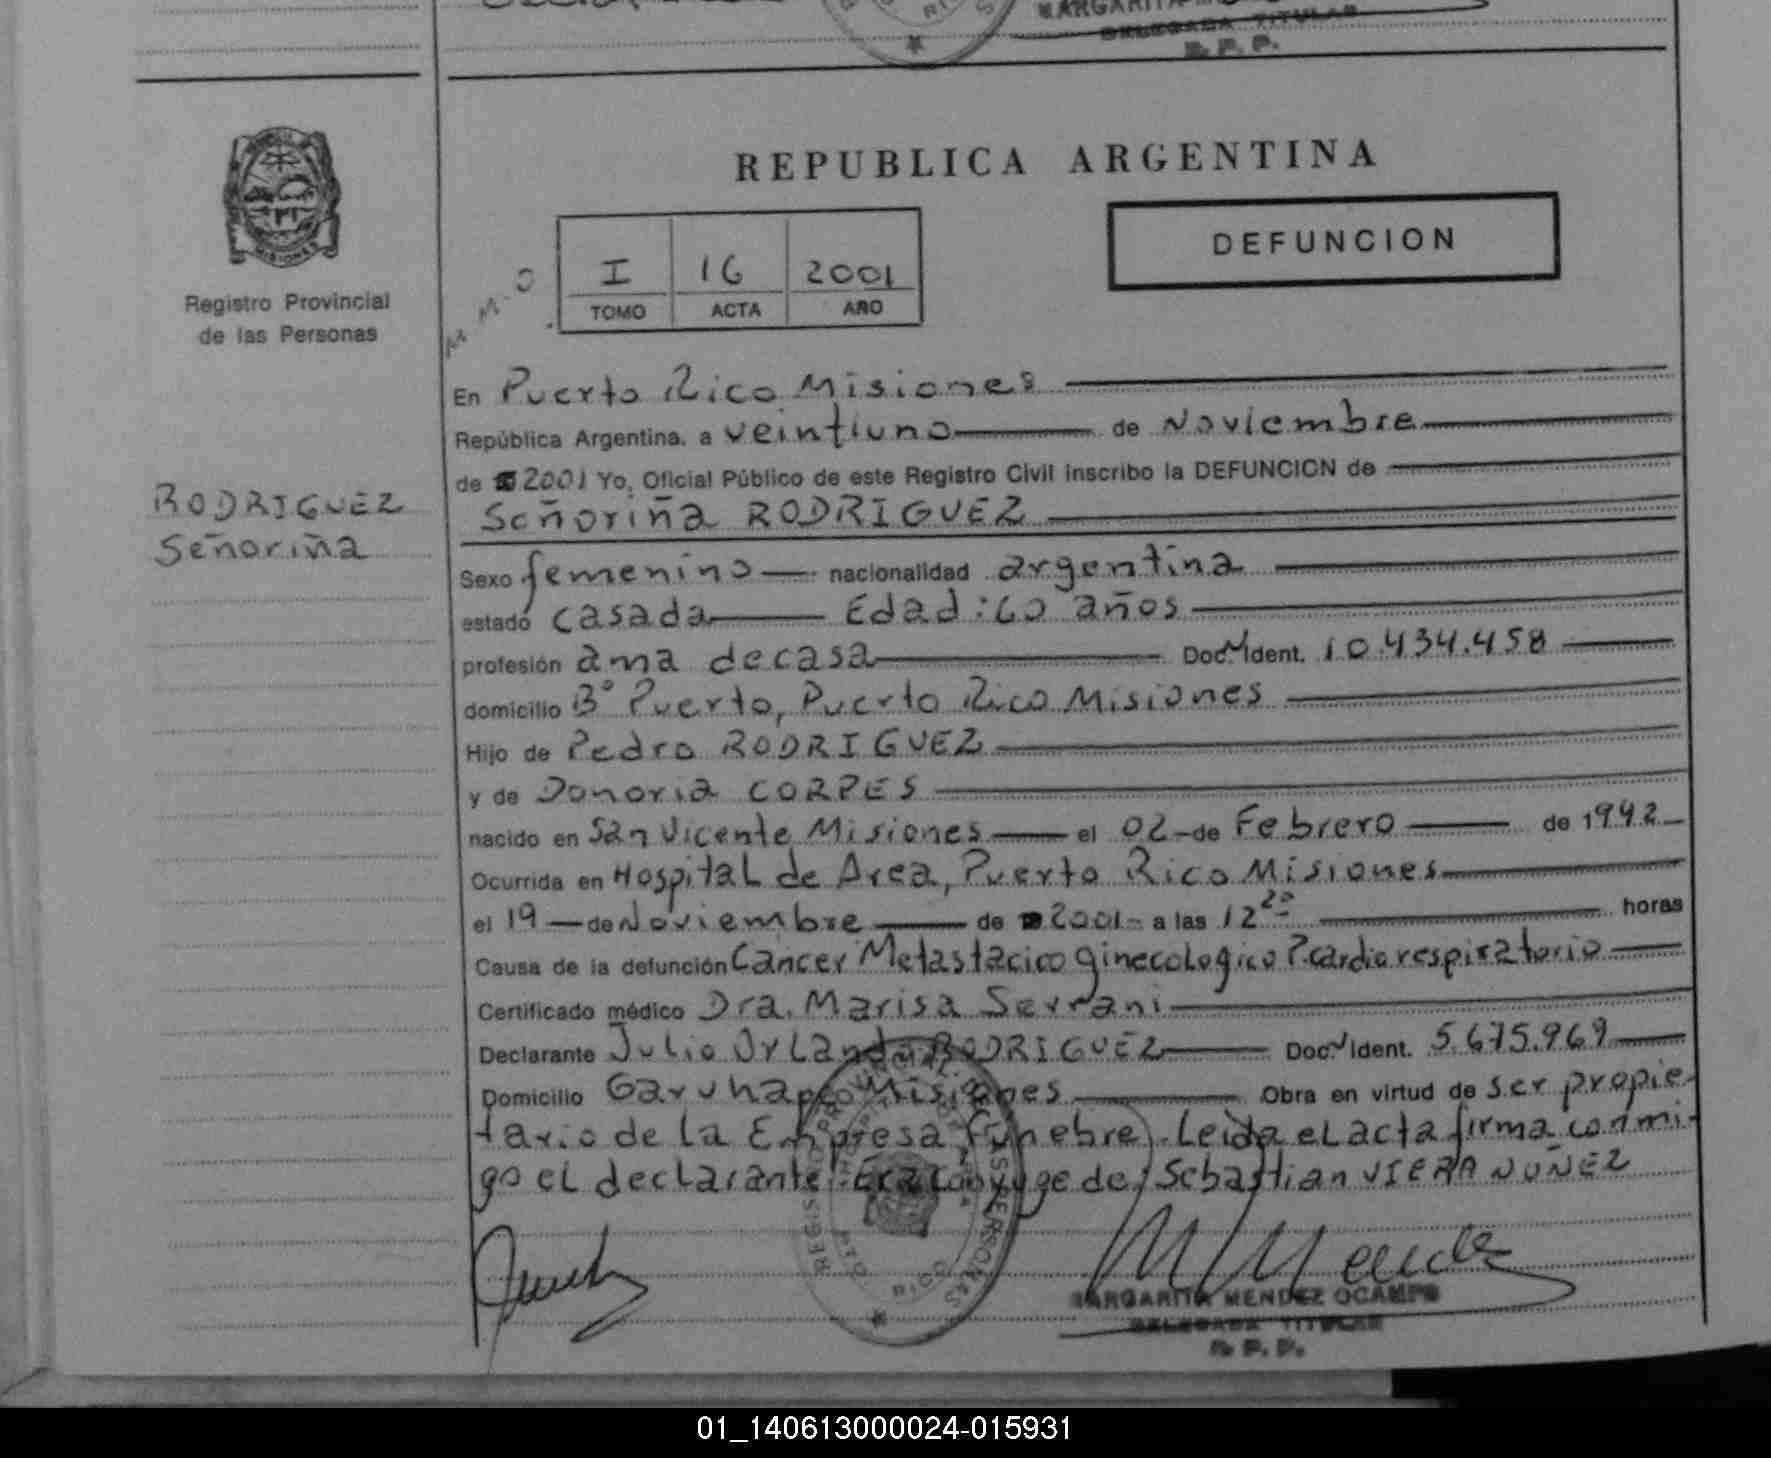 DELEGADA TITULAR
R. P. P.
REPUBLICA ARGENTINA
DEFUNCION
I 16 2001
TOMO ACTA AÑO
M. M. O
MISIONES
Registro Provincial
de las Personas
RODRIGUEZ
Señoriña
En Puerto Rico Misiones
República Argentina. a veintiuno de Noviembre
de 2001 Yo, Oficial Público de este Registro Civil inscribo la DEFUNCION de
Señoriña RODRIGUEZ
Sexo femenino nacionalidad argentina
estado casada Edad: 60 años
profesión ama de casa Doc. Ident. 10.434.458
domicilio B° Puerto, Puerto Rico Misiones
Hijo de Pedro RODRIGUEZ
y de Donoria CORPES
nacido en San Vicente Misiones el 02 de Febrero de 1942
Ocurrida en Hospital de Area, Puerto Rico Misiones
el 19 de Noviembre de 2001 a las 12 20 horas
Causa de la defunción Cancer Metastacico ginecologico P. cardio respiratorio
Certificado médico Dra. Marisa Serrani
Declarante Julio Orlando RODRIGUEZ Doc. Ident. 5.675.969
Domicilio Garuhape Misiones Obra en virtud de ser propie-
tario de la Empresa Funebre. Leida el acta firma conmi-
go el declarante. Era conyuge de Sebastian VIERA NUÑEZ
MARGARITA MENDEZ OCAMPO
DELEGADA TITULAR
R. P. P.
01_140613000024-015931